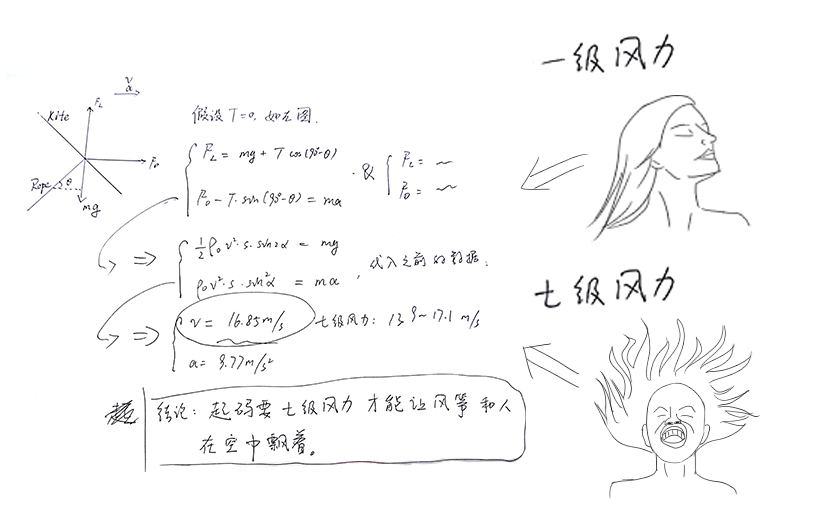 一级风力
v
a
F_L
Kite
F_D
Rope θ
mg
假设 T=0, 如左图.
F_L = mg + T cos(90°-θ)
F_D - T·sin(90°-θ) = ma
&
F_L = ~
F_D = ~
⇒ ½ρ₀v²·s·sin2α = mg
ρ₀v²·s·sin²α = ma
, 代入之前的数据.
七级风力
⇒ v = 16.85m/s 七级风力: 13.9~17.1 m/s
a = 9.77m/s²
结论: 起码要七级风力才能让风筝和人
在空中飘着。